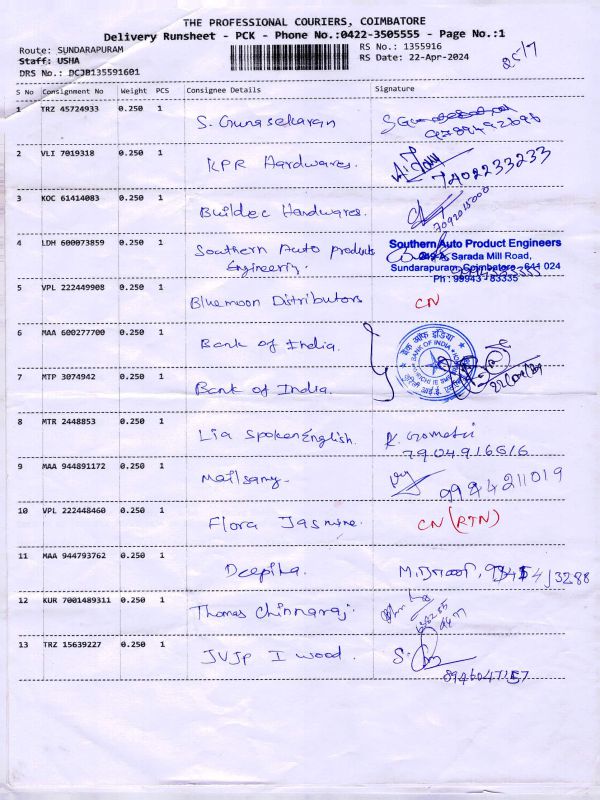 THE PROFESSIONAL COURIERS, COIMBATORE
Delivery Runsheet - PCK - Phone No.:0422-3505555 - Page No.:1
Route: SUNDARAPURAM
Staff: USHA
DRS No.: DCJB135591601
RS No.: 1355916
RS Date: 22-Apr-2024
S No Consignment No Weight PCS Consignee Details Signature
1 TRZ 45724933 0.250 1 S. Gunasekaran
2 VLI 7019318 0.250 1 KPR Hardwares. 7402233233
3 KOC 61414083 0.250 1 Buildec Hardwares.
4 LDH 600073859 0.250 1 Southern Auto products
Engineering.
Southern Auto Product Engineers
249-A, Sarada Mill Road,
Sundarapuram, Coimbatore - 641 024
Ph : 99943 - 83335
5 VPL 222449908 0.250 1 Bluemoon Distributors CN
6 MAA 600277700 0.250 1 Bank of India.
7 MTP 3074942 0.250 1 Bank of India.
बैंक ऑफ इंडिया
BANK OF INDIA
22/04/24
8 MTR 2448853 0.250 1 Lia Spoken English. R. Gomathi
7904916516
9 MAA 944891172 0.250 1 Mailsamy. 9994211019
10 VPL 222448460 0.250 1 Flora Jasmine. CN (RTN)
11 MAA 944793762 0.250 1 Deepika.
12 KUR 7001489311 0.250 1 Thomas Chinnaraj.
13 TRZ 15639227 0.250 1 JVJP I wood.